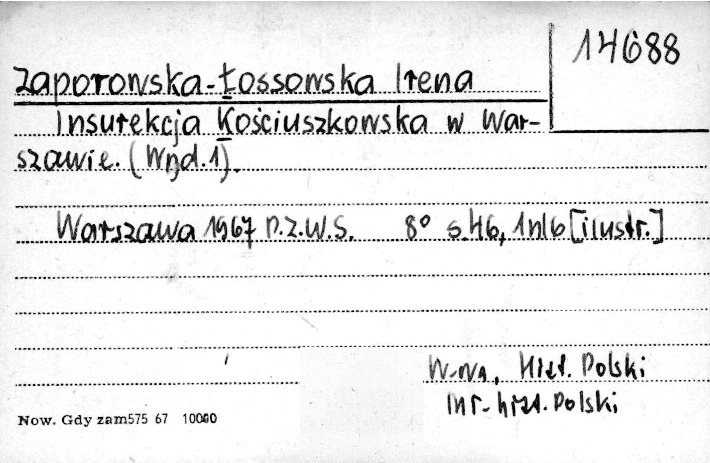 14688
Zaporowska-Łossowska Irena
Insurekcja Kościuszkowska w War-
szawie. (Wyd.1).
Warszawa 1967 P.Z.W.S. 8° s.46, 1nlb [ilustr.]
W-wa, Hist. Polski
Inr-hist. Polski
Now. Gdy zam575 67 10000